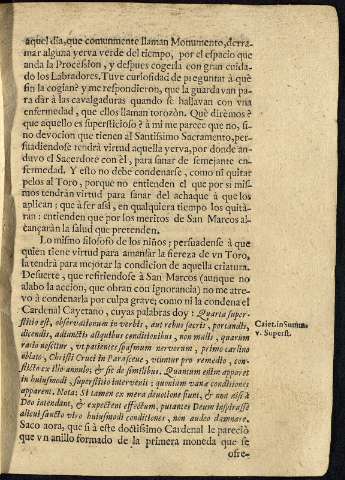 aquel dia, que comunmente llaman Monumento, derra-
mar alguna yerva verde del tiempo, por el espacio que
anda la Procession, y despues cogerla con gran cuida-
do los Labradores. Tuve curiosidad de preguntar à què
fin la cogian? y me respondieron, que la guardavan pa-
ra dàr à las cavalgaduras quando se hallavan con vna
enfermedad, que ellos llaman torozòn. Què dirèmos?
que aquello es supersticioso? à mi me parece que no, si-
no devocion que tienen al Santissimo Sacramento, per-
suadiendose tendrà virtud aquella yerva, por donde an-
duvo el Sacerdote con èl, para sanar de semejante en-
fermedad. Y esto no debe condenarse, como ni quitar
pelos al Toro, porque no entienden el que por si mis-
mos tendràn virtud para sanar del achaque à que los
aplican; que à ser assi, en qualquiera tiempo los quità-
ran: entienden que por los meritos de San Marcos al-
cançaràn la salud que pretenden.
Lo mismo filosofo de los niños; persuadense à que
quien tiene virtud para amansar la fiereza de vn Toro,
la tendrà para mejorar la condicion de aquella criatura.
Desuerte, que refiriendose à San Marcos (aunque no
alabo la accion, que obran con ignorancia) no me atre-
vo à condenarla por culpa grave; como ni la condena el
Cardenal Cayetano, cuyas palabras doy: Quarta super-
stitio est, observationum in verbis, aut rebus sacris, portandis,
dicendis, adiunctis aliquibus conditionibus, non malis, quarum
ratio nescitur, vt patientes spasmum nervorum, primo carlino
oblato, Christi Cruci in Parasceve, vtuntur pro remedio, con-
flicto ex illo annulo; & sic de similibus. Quantum enim apparet
in huiusmodi, superstitio intervenit: quoniam vana conditiones
apparent. Nota: Si tamen ex mera devotione fiunt, & non nisi à
Deo intendant, & expectent effectum, putantes Deum inspirasse
alicui sancto viro huiusmodi conditiones, non audeo damnare.
Saco aora, que si à este doctissimo Cardenal le pareciò
que vn anillo formado de la primera moneda que se
ofre-
Caiet. in Summa
v. Superst.